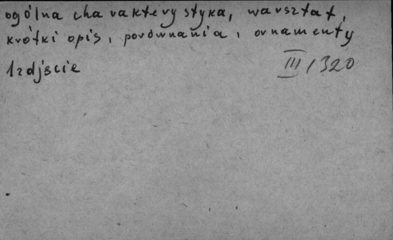 ogólna charakterystyka, warsztat,
krótki opis, porównania, ornamenty
1 zdjęcie III/320